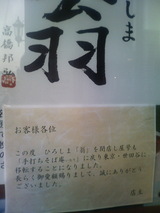 しま
翁
高橋邦弘
お客様各位
この度 ひろしま「翁」を閉店し屋号も
「手打ちそば
に戻り東京・世田谷に
移転することになりました。
長らく御愛顧賜りまして、誠にありがとう
ございました。
店主